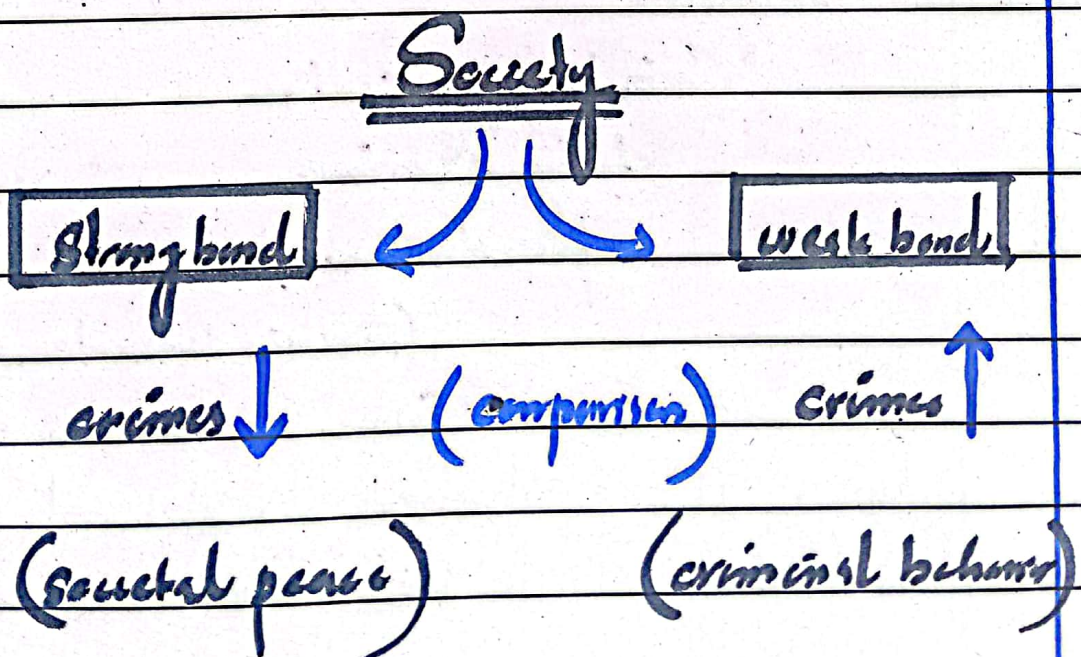 Society
Strong bond
weak bond
crimes
(comparison)
crimes
(societal peace)
(criminal behavior)